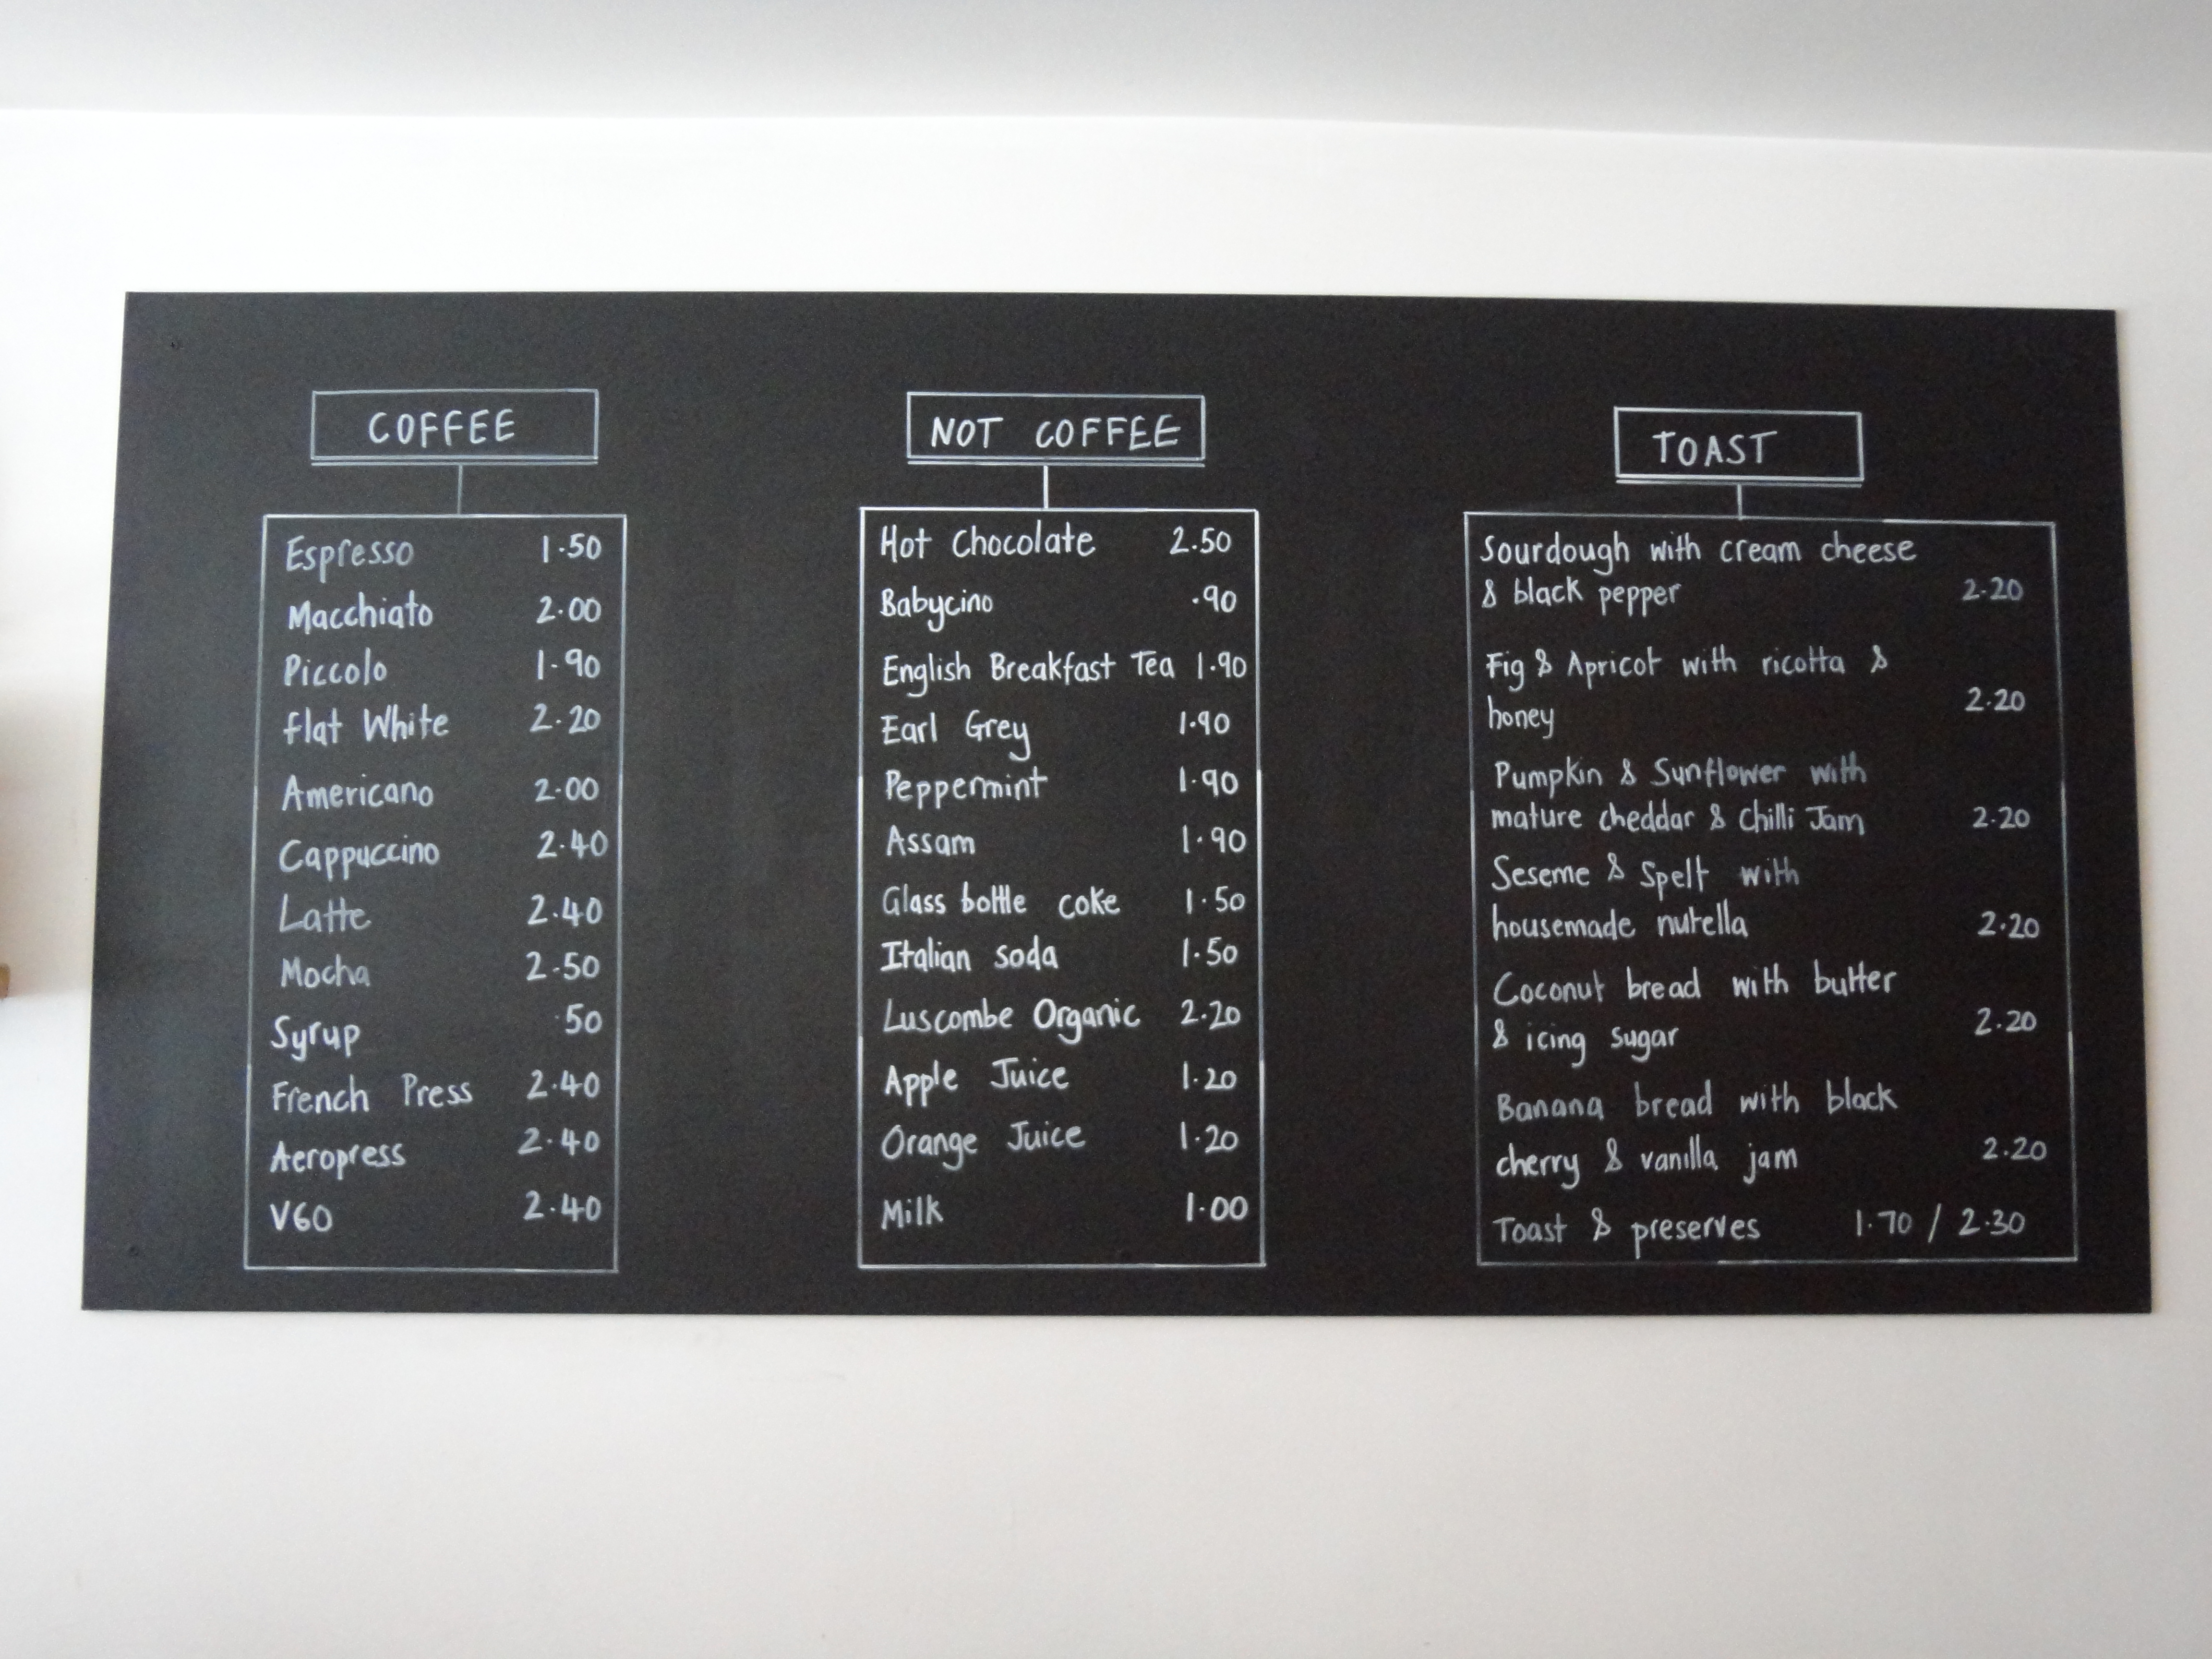 COFFEE
Espresso 1.50
Macchiato 2.00
Piccolo 1.90
flat White 2.20
Americano 2.00
Cappuccino 2.40
Latte 2.40
Mocha 2.50
Syrup .50
French Press 2.40
Aeropress 2.40
V60 2.40
NOT COFFEE
Hot Chocolate 2.50
Babycino .90
English Breakfast Tea 1.90
Earl Grey 1.90
Peppermint 1.90
Assam 1.90
Glass bottle coke 1.50
Italian soda 1.50
Luscombe Organic 2.20
Apple Juice 1.20
Orange Juice 1.20
Milk 1.00
TOAST
Sourdough with cream cheese
& black pepper 2.20
Fig & Apricot with ricotta &
honey 2.20
Pumpkin & Sunflower with
mature cheddar & Chilli Jam 2.20
Seseme & Spelt with
housemade nutella 2.20
Coconut bread with butter
& icing sugar 2.20
Banana bread with black
cherry & vanilla jam 2.20
Toast & preserves 1.70 / 2.30